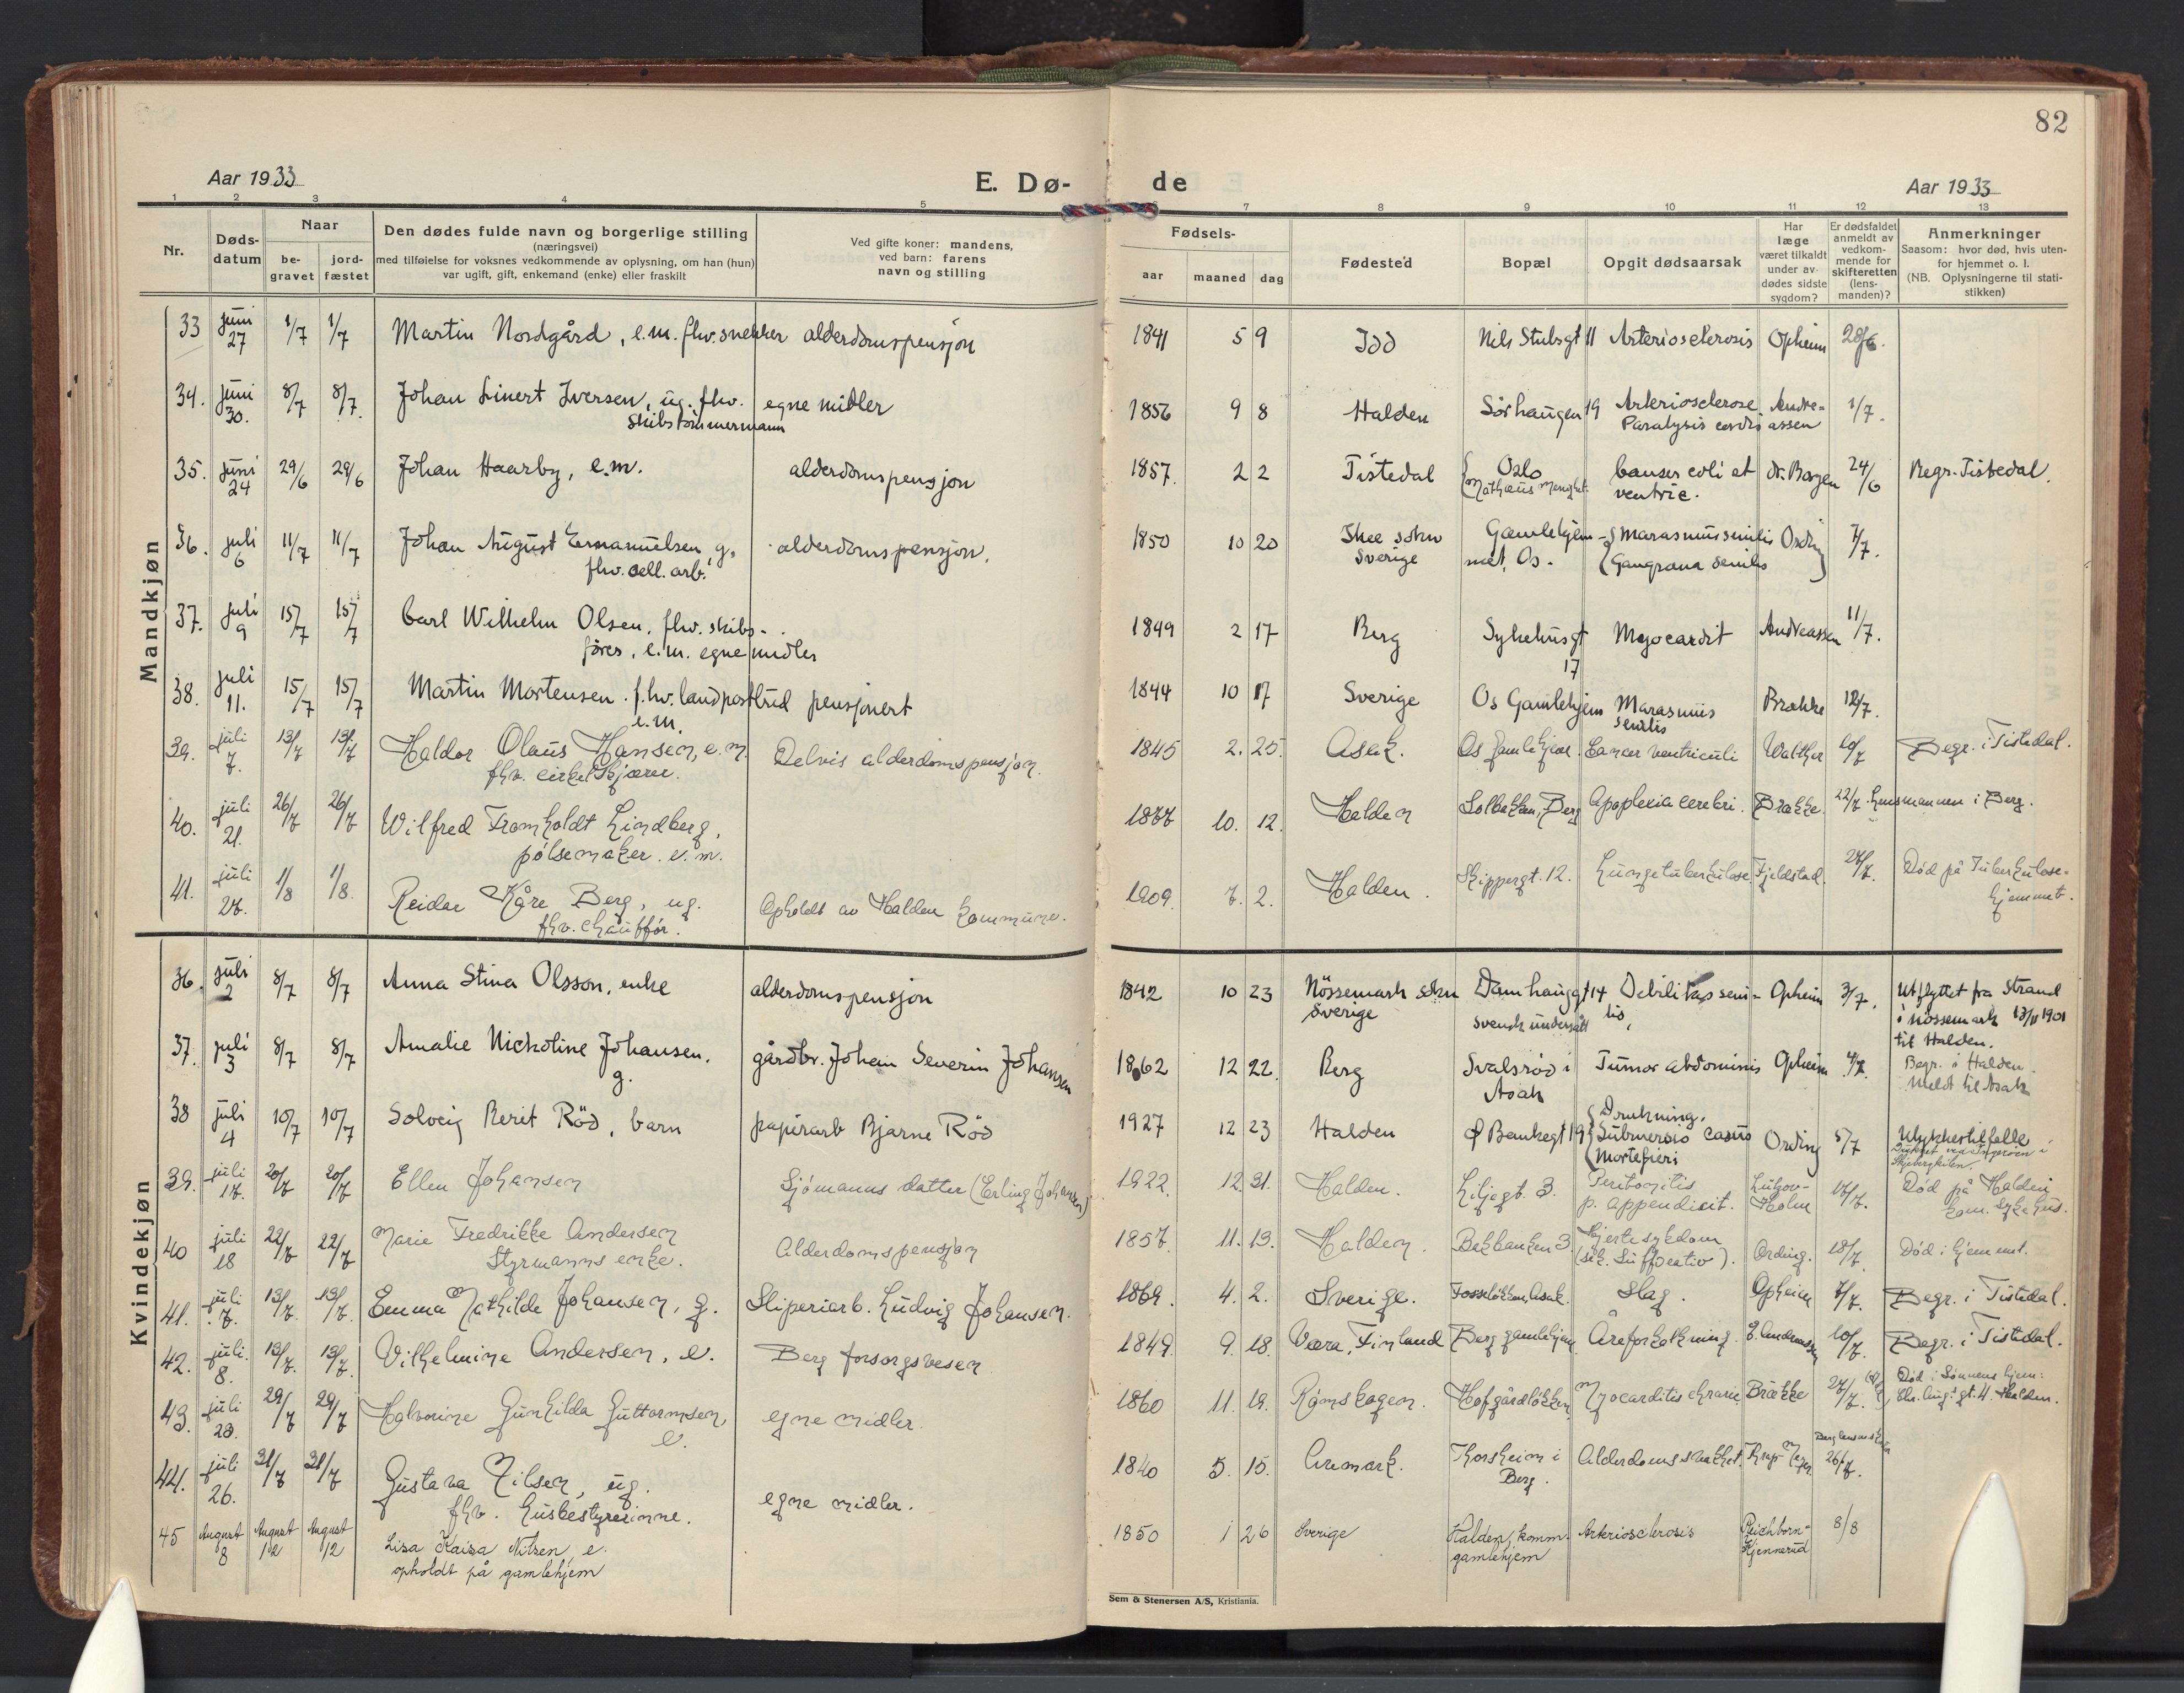 82
Aar 1933
E. Dø-
de
Aar 1933
1 2 3 4 5 6 7 8 9 10 11 12 13
Nr.
Døds-
datum
Naar
be-
gravet
jord-
fæstet
Den dødes fulde navn og borgerlige stilling
(næringsvei)
med tilføielse for voksnes vedkommende av oplysning, om han (hun)
var ugift, gift, enkemand (enke) eller fraskilt
Ved gifte koner: mandens,
ved barn: farens
navn og stilling
Fødsels-
aar maaned dag
Fødested
Bopæl
Opgit dødsaarsak
Har
læge
været tilkaldt
under av-
dødes sidste
sygdom?
Er dødsfaldet
anmeldt av
vedkom-
mende for
skifteretten
(lens-
manden)?
Anmerkninger
Saasom: hvor død, hvis uten-
for hjemmet o. l.
(NB. Oplysningerne til stati-
stikken)
Mandkjøn
33 juni 27 1/7 1/7 Martin Nordgård, e.m. fhv. snekker alderdomspensjon 1841 5 9 Idd Nils Stubsgt 11 Arteriosclerosis Opheim 28/6.
34. juni 30. 8/7 8/7. Johan Linert Iversen, ug. fhv. egne midler 1856 9 8 Halden Sörhaugen 19 Arteriosclerose Andre- 1/7.
skibstömmermann Paralysis cordis assen
35. juni 24 29/6 29/6 Johan Haarby, e.m. alderdomspensjon 1857. 2 2 Tistedal Oslo Cancer coli et dr. Borgen 24/6 Begr. Tistedal.
Mathæus menighet. ventric.
36. juli 6 11/7 11/7 Johan August Emanuelsen, g. alderdomspensjon. 1850 10 20 Skee sokn Gamlehjem- Marasmus senilis Ording 7/7.
fhv. cell. arb. Sverige met, Os. Gangræna senilis
37. juli 9 15/7 15/7 Carl Wilhelm Olsen, fhv. skibs- 1849 2 17 Berg Sykehusgt Myocardit Andreassen 11/7.
förer, e.m. egne midler 17
38. juli 11. 15/7 15/7 Martin Mortensen. fhv. landpostbud pensjonert 1844 10 17 Sverige Os Gamlehjem Marasmus Brække 12/7.
e.m. senilis
39. juli 7. 13/7 13/7 Haldor Olaus Hansen, e.m. Delvis alderdomspensjon. 1845 2. 25. Asak. Os gamlehjem. Cancer ventriculi Walther 10/7 Begr. i Tistedal.
fhv. cirkelskjærer.
40. juli 21. 26/7 26/7 Wilfred Fromholdt Lindberg, 1877 10. 12. Halden Solbakken, Berg Apoplexia cerebri. Brække. 22/7 Lensmannen i Berg.
pølsemaker. e.m.
41. juli 27. 1/8 1/8. Reidar Kåre Berg, ug. Opholdt av Halden kommune. 1909. 7. 2. Halden. Skippergt. 12. Lungetuberkulose Fjeldstad. 27/7. Død på Tuberkulose-
fhv. chauffør. hjemmet.
Kvindekjøn
36. juli 2 8/7 8/7 Anna Stina Olsson, enke alderdomspensjon 1842 10 23 Nössemark sokn Damhaugt 14 Debilitas seni- Opheim 3/7. Utflyttet fra Strand
Sverige svensk undersått lis, i Nössemark 13/11 1901
til Halden.
37. juli 3 8/7 8/7 Amalie Nicholine Johansen. gårdbr. Johan Severin Johansen 1862 12 22. Berg Svalsröd i Tumor abdominis Opheim 4/7. Begr. i Halden.
g. Asak Meldt til Asak
38 juli 4 10/7 10/7 Solveig Berit Röd, barn papirarb Bjarne Röd 1927 12 23 Halden Ø Bankegt 19 Drukning, Ording 5/7 Ulykkestilfelle
Submersio casus
Mortefieri
39. juli 17. 20/7 20/7 Ellen Johansen Sjømanns datter (Erling Johansen) 1922. 12. 31. Halden. Liljegt. 3. Peritonitis Lützow- 17/7. Død på Halden
p. appendicit. Holm kom. sykehus.
40 juli 18 22/7 22/7 Marie Fredrikke Andersen Alderdomspensjon 1857. 11. 13. Halden. Bakbanken 3. Hjertesykdom Ording. 18/7 Død i hjemmet.
Styrmanns enke.
41. juli 7. 13/7. 13/7. Emma Mathilde Johansen, g. Sliperiarb. Ludvig Johansen. 1869. 4. 2. Sverige. Fosseløkken, Asak. Slag. Opheim 7/7. Begr. i Tistedal.
42. juli. 8. 13/7. 13/7. Vilhelmine Andersen, e. Berg forsorgsvesen 1849. 9. 18. Vora, Finland Berg gamlehjem Åreforkalkning. E. Andreassen 10/7. Begr. i Tistedal.
43. juli 23. 29/7 29/7 Halvorine Gunhilda Guttormsen, egne midler. 1860 11. 19. Rømskogen. Hofgårdløkken Myocarditis chronic Brække 27/7. Død i Sønnens hjem:
e. gt. 4 Halden.
44. juli 26. 31/7 31/7 Gustava Nilsen, ug. egne midler. 1840 5. 15. Aremark. Thorsheim i Alderdomssvakhet. 26/7.
fhv. husbestyrerinne. Berg.
45 August 8 August 12 August 12 Lisa Kaisa Nilsen, e. 1850 1 26 Sverige Halden komm. Arteriosclerosis Reichborn- 8/8
opholdt på gamlehjem gamlehjem Kjennerud
Sem & Stenersen A/S, Kristiania.